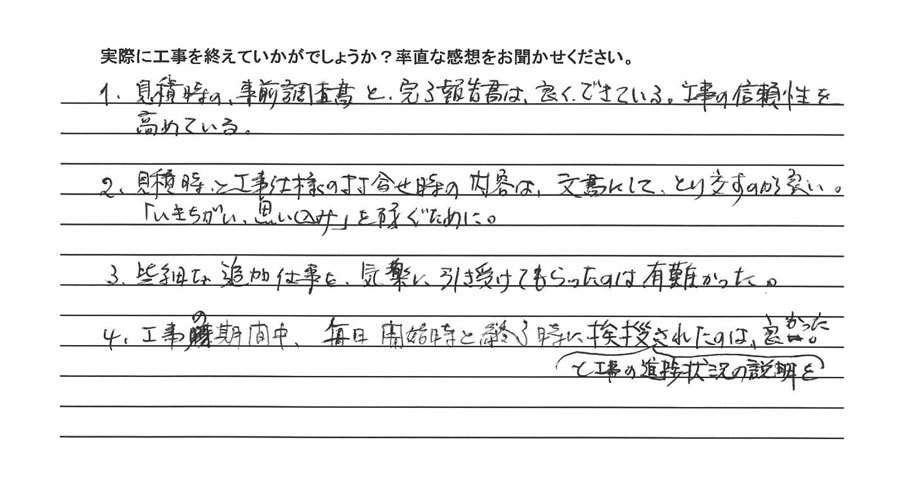 実際に工事を終えていかがでしょうか？率直な感想をお聞かせください。
1. 見積時の、事前調査書と、完了報告書は、良くできている。工事の信頼性を
高めている。
2. 見積時と工事仕様の打合せ時の内容は、文書にして、とり交すのが良い。
「いきちがい、思い込み」を防ぐために。
3. 些細な追加仕事を、気楽に引き受けてもらったのは有難かった。
4. 工事の期間中、毎日開始時と終了時に挨拶されたのは、良かった。
と工事の進捗状況の説明を